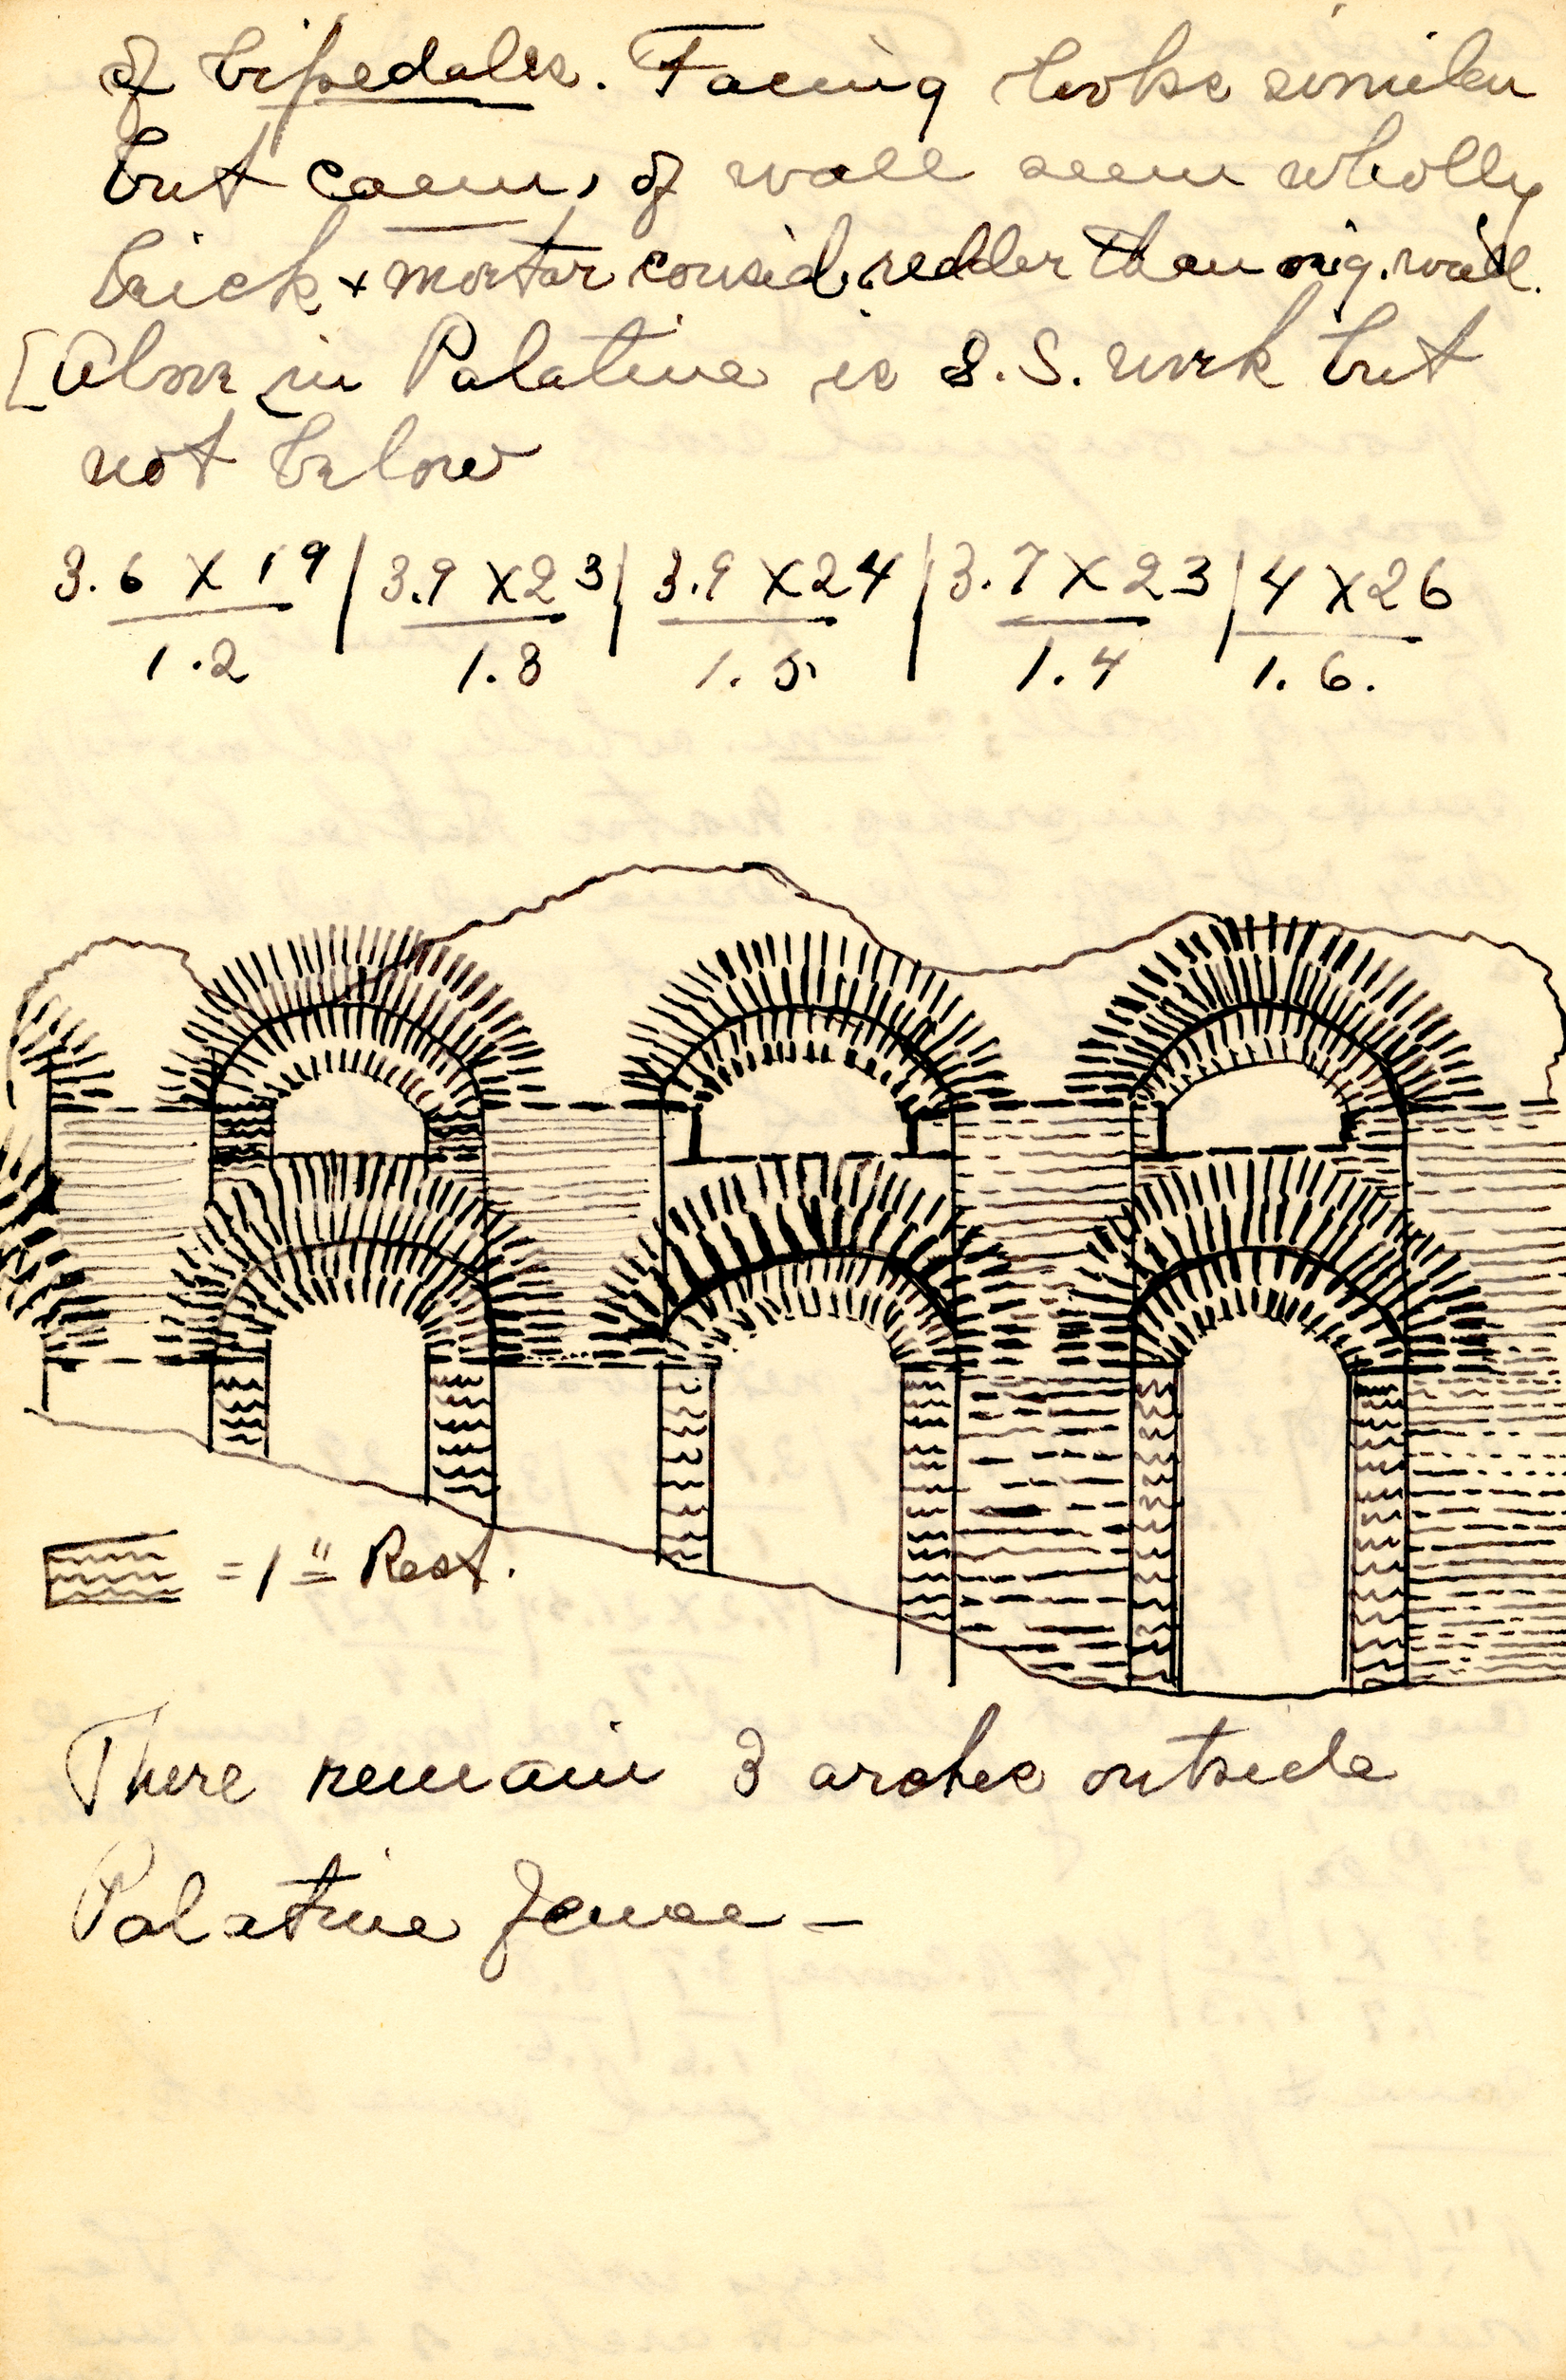 of bipedales. Facing looks similar
but caem, of wall seem wholly
brick + mortar consid. redder than orig. wall.
[Above in Palatine is S.S. work but
not below
3.6 X 19 / 3.9 X 23 / 3.9 X 24 / 3.7 X 23 / 4 X 26
1.2 1.8 1.5 1.4 1.6.
= 1" Rest.
There remain 3 arches outside
Palatine fence –